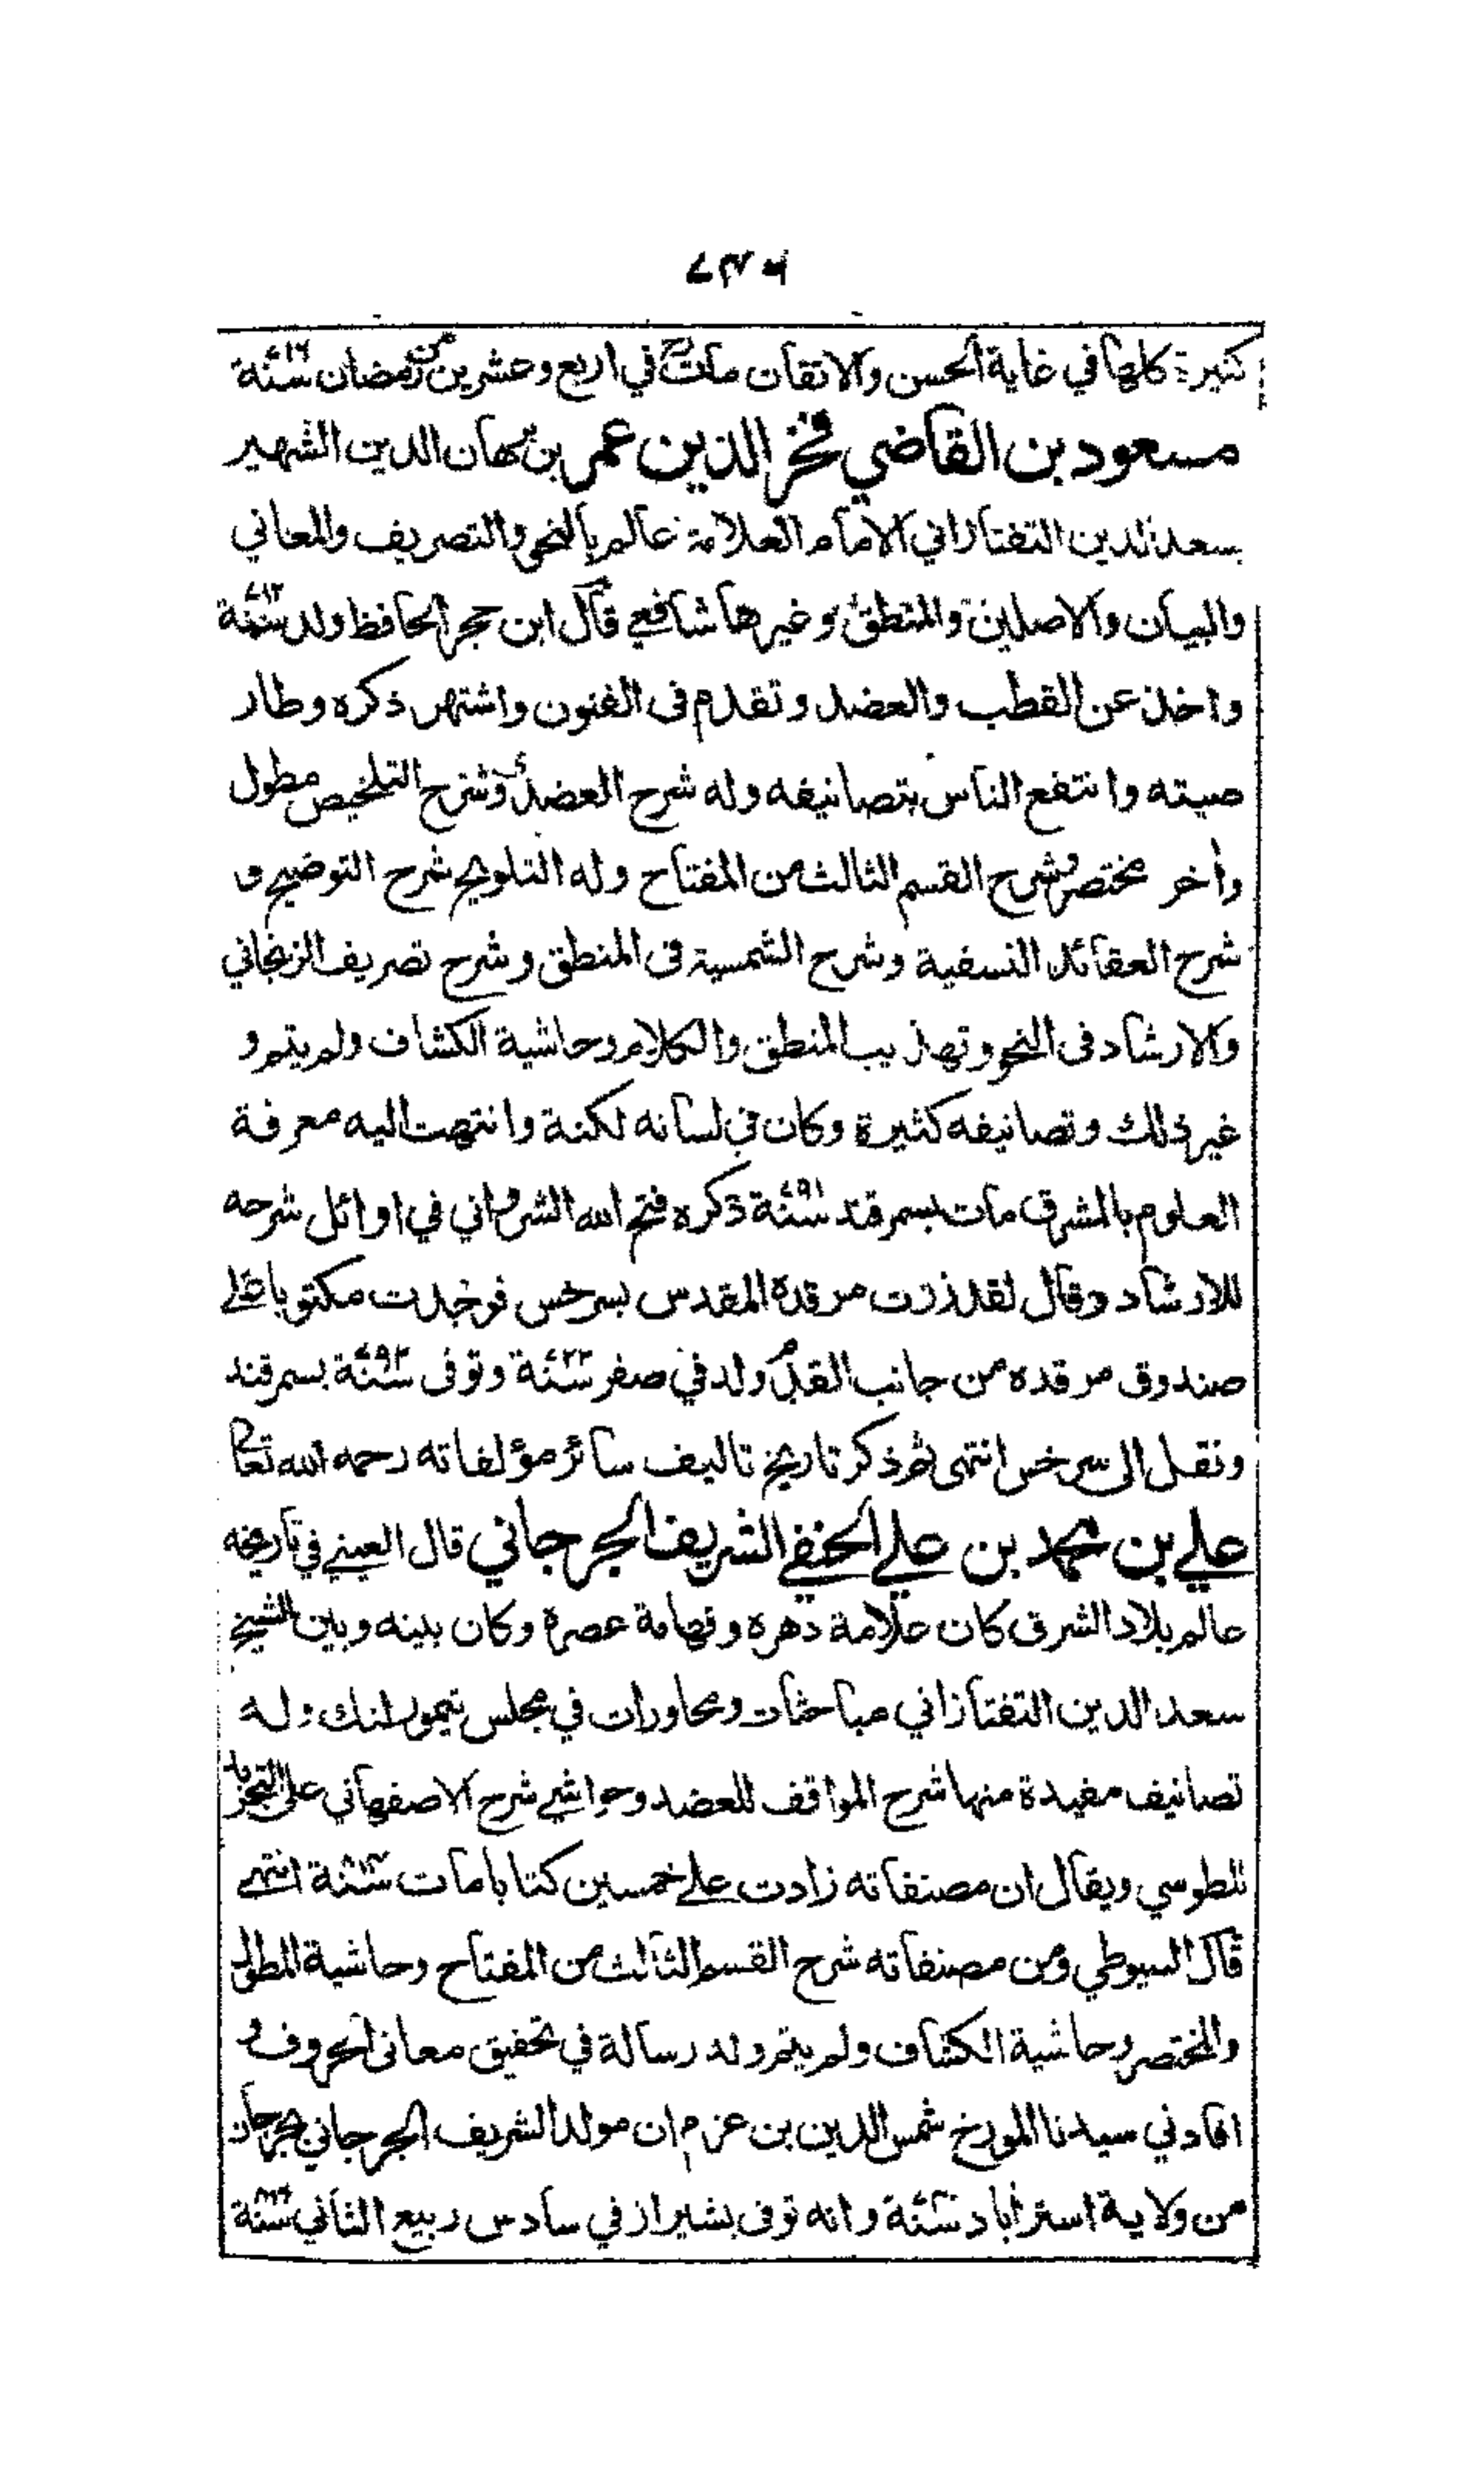 ٧٣٦
كثيرة كلها في غاية الحسن والاتقان مات في اربع وعشرين من رمضان سنة
مسعود بن القاضي فخر الدين عمر بن برهان الدين الشهير
بسعد الدين التفتازاني الامام العلامة عالم بالنحو والتصريف والمعاني
والبيان والاصلين والمنطق وغيرها شافعي قال ابن حجر الحافظ ولد سنة ٧١٢
واخذ عن القطب والعضد وتقدم فى الفنون واشتهر ذكره وطار
صيته وانتفع الناس بتصانيفه وله شرح العضد وشرح التلخيص مطول
وأخر مختصر وشرح القسم الثالث من المفتاح وله التلويح شرح التوضيح و
شرح العقائد النسفية وشرح الشمسية فى المنطق وشرح تصريف الزنجاني
والارشاد فى النحو وتهذيب المنطق والكلام وحاشية الكشاف ولم يتم و
غير ذلك وتصانيفه كثيرة وكان في لسانه لكنة وانتهت اليه معرفة
العلوم بالمشرق مات بسمرقند سنة ٧٩١ ذكره فتح الله الشرواني في اوائل شرحه
للارشاد وقال لقد زرت مرقده المقدس بسرخس فوجدت مكتوبا على
صندوق مرقده من جانب القدم ولد في صفر سنة ٧٢٢ وتوفى سنة ٧٩٢ بسمرقند
ونقل الى سرخس انتهى ثم ذكر تاريخ تاليف سائر مؤلفاته رحمه الله تعالى
علي بن محمد بن علي الحنفي الشريف الجرجاني قال العيني في تاريخه
عالم بلاد الشرق كان علامة دهره وفهامة عصره وكان بينه وبين الشيخ
سعد الدين التفتازاني مباحثات ومحاورات في مجلس تيمور لنك وله
تصانيف مفيدة منها شرح المواقف للعضد وحواشي شرح الاصفهاني على التجريد
للطوسي ويقال ان مصنفاته زادت على خمسين كتابا مات سنة انتهى
قال السيوطي ومن مصنفاته شرح القسم الثالث من المفتاح وحاشية المطول
والمختصر وحاشية الكشاف ولم يتم وله رسالة في تحقيق معانى الحروف و
افادني سيدنا المورخ شمس الدين بن عزم ان مولد الشريف الجرجاني بجرجان
من ولاية استراباد سنة وانه توفى بشيراز في سادس ربيع الثاني سنة